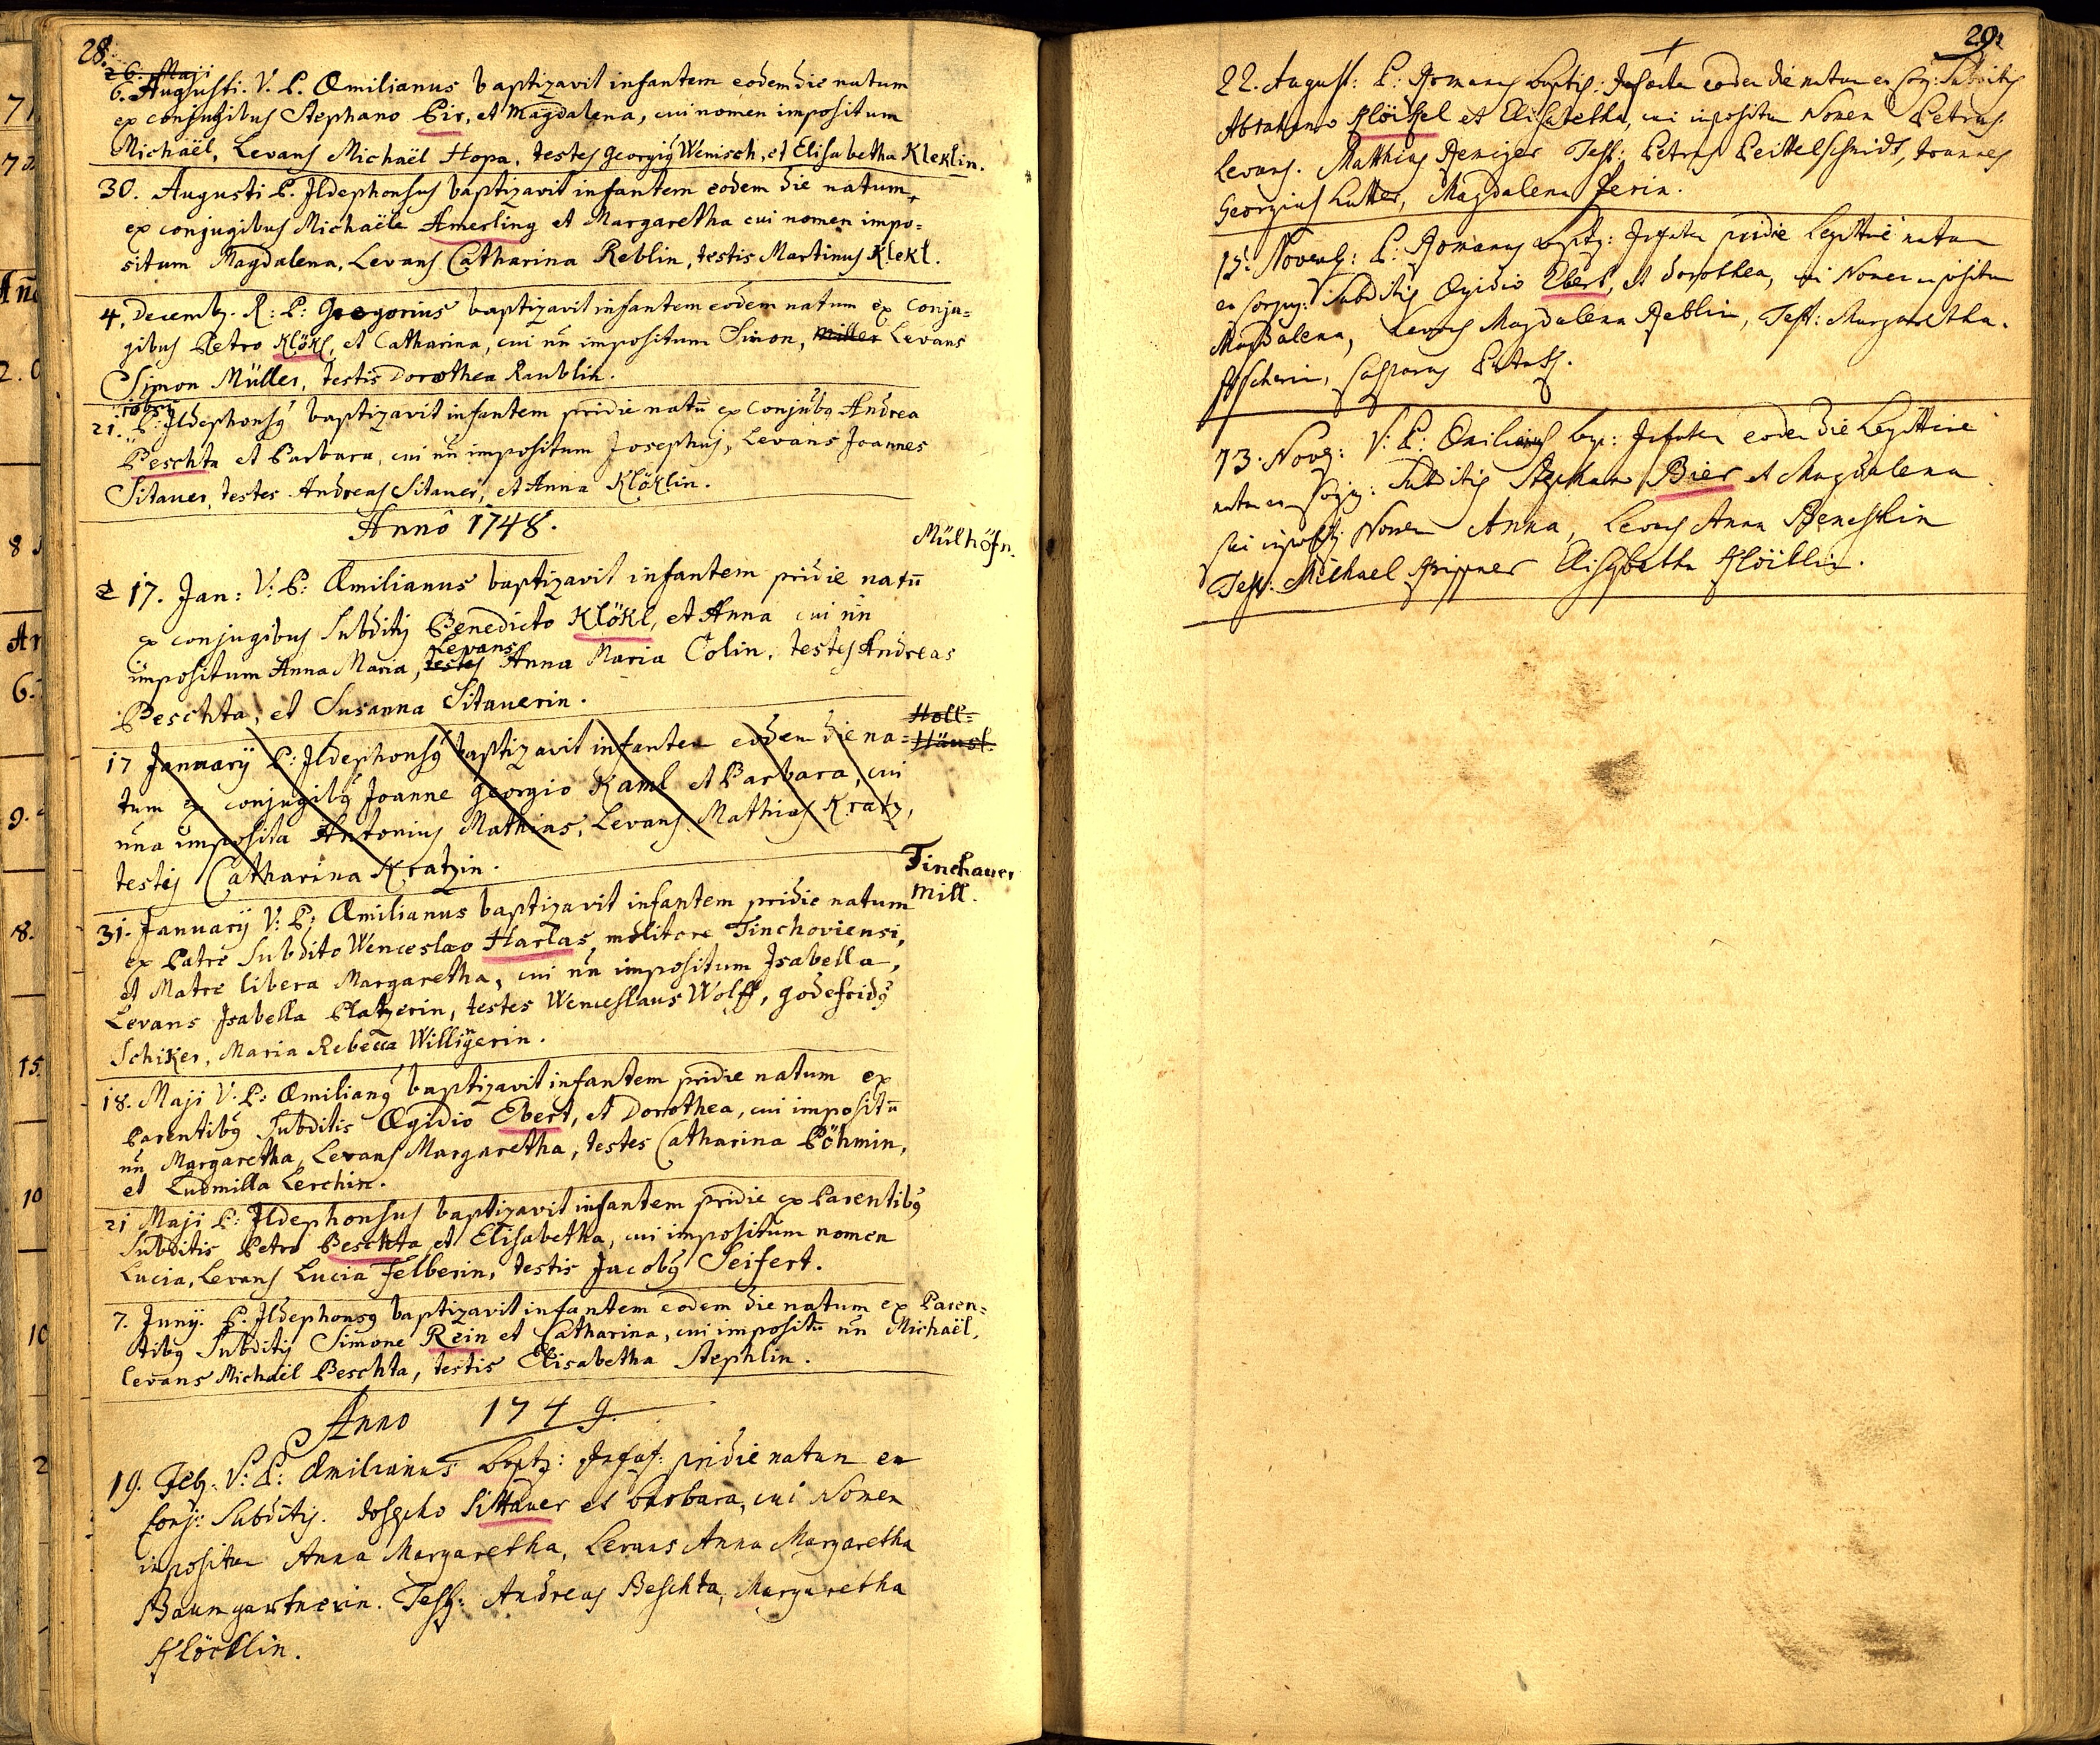 28.
26. Maji
6. Augusti. V. P. Æmilianus baptizavit infantem eodem die natum
ex conjugibus Stephano Pir, et Magdalena, cui nomen impositum
Michaël, Levans Michaël Hopa, testes Georgiȝ Wenisch, et Elisabetha Kleklin.
30. Augusti P. Ildephonsus baptizavit infantem eodem die natum
ex conjugibus Michaële Amerling et Margaretha cui nomen impo=
situm Magdalena, Levans Catharina Reblin, testis Martinus Klekl.
4. Decemb. R: P: Gregorius baptizavit infantem eodem natum ex conju=
gibus Petro Klökl, et Catharina, cui nn̄ impositum Simon, Miller Levans
Simon Müller, testis Dorothea Raublin.
21. P: Ildephonsȝ baptizavit infantem pridie natū ex conjubȝ Andrea
Peschta et Barbara, cui nn̄ impositum Josephus, Levans Joannes
Sitauer, testes Andreas Sitauer, et Anna Klöklin.
Annô 1748.
Mülhöfn.
17. Jan: V: P: Æmilianus baptizavit infantem pridie natū
ex conjugibus subditis Benedicto Klökl, et Anna cui nn̄
Levans
impositum Anna Maria, testes Anna Maria Colin, testes Andreas
Peschta, et Susanna Sitauerin.
Holl=
Häusl.
17 Januarij P: Ildephonsȝ baptizavit infantem eodem die na=
tum ex conjugibȝ Joanne Georgio Kaml et Barbara, cui
nn̄a imposita Antonius Mathias, Levans Mathias Kratz,
testis Catharina Kratzin.
Tinchauer
Mill.
31. Januarij V: P: Æmilianus baptizavit infantem pridie natum
ex Patre Subdito Wenceslao Harlas, molitore Tinchoviensi,
et Matre libera Margaretha, cui nn̄ impositum Isabella,
Levans Isabella Platzerin, testes Wenceslaus Wolff, Godefridȝ
Schiker, Maria Rebecca Willingerin.
18. Maji V. P: Æmilianȝ baptizavit infantem pridie natum ex
Parentibȝ Subditis Ægidio Ebert, et Dorothea, cui impositū
nn̄ Margaretha, Levans Margaretha, testes Catharina Böhmin,
et Ludmilla Lerchin.
21 Maji P: Ildephonsus baptizavit infantem pridie ex Parentibȝ
Subditis Petro Beschta et Elisabetha, cui impositum nomen
Lucia, Levans Lucia Felberin, testis Jacobȝ Seifert.
7. Junij. P: Ildephonsȝ baptizavit infantem eodem die natum ex Paren=
tibȝ Subditis Simone Rein et Catharina, cui impositū nn̄ Michaël,
Levans Michaël Peschta, testis Elisabetha Stephlin.
Anno 1749.
19. Feb: V: P: Æmilianus Baptz: Infaf: pridie natum ex
Conj: Subditis. Josepho Sittauer et Barbara, cui Nomen
impositum Anna Margaretha, Levans Anna Margaretha
Baumgartnerin. Test: Andreas Beschta, Margaretha
Klöcklin.
29.
22. August: P: Romanus baptiz: Infantem eodem die natum ex conj: Subditis
Abrahamo Klöckel et Elisabetha, cui impositum Nomen Petrus.
Levans. Matthias Remiger Test: Petrus Peittelschmidt, Joannes
Georgius Lutter, Magdalena
Novemb: P: Romanus baptz: Infantem pridie Legittime natum
ex conjug: Subditis Ægidio Ebert, et Dorothea, cui Nomen impositum
Magdalena, Levans Magdalena Reblin, Test: Margaretha
Casparus
Novb: V: P: Æmilianus bap: Infantem eodem die Legittime
natum ex conj: Subditis Stephano Bier et Magdalena
cui imposit: Nomen Anna, Levans Anna Beneschin
Test: Michael Elisabetha Klöcklin.